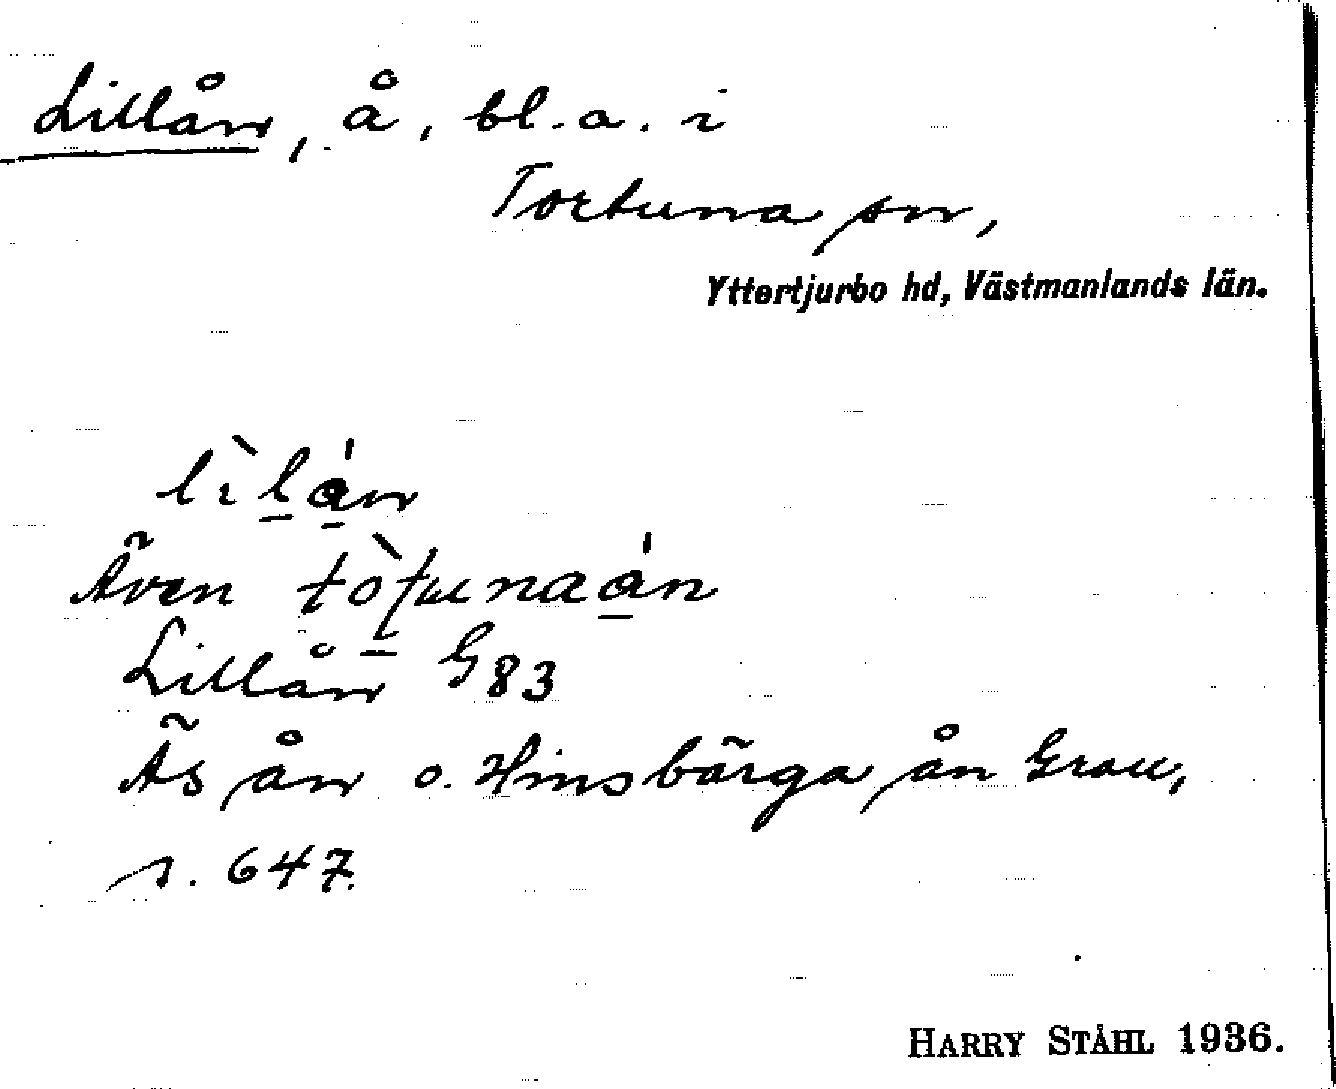 Lillån, å, bl. a. i
Tortuna sn,
Yttertjurbo hd, Västmanlands län.
Även
Lillån G83
Äs ån o. Hinsbärga ån Grau,
s. 647.
HARRY STÅHL 1936.